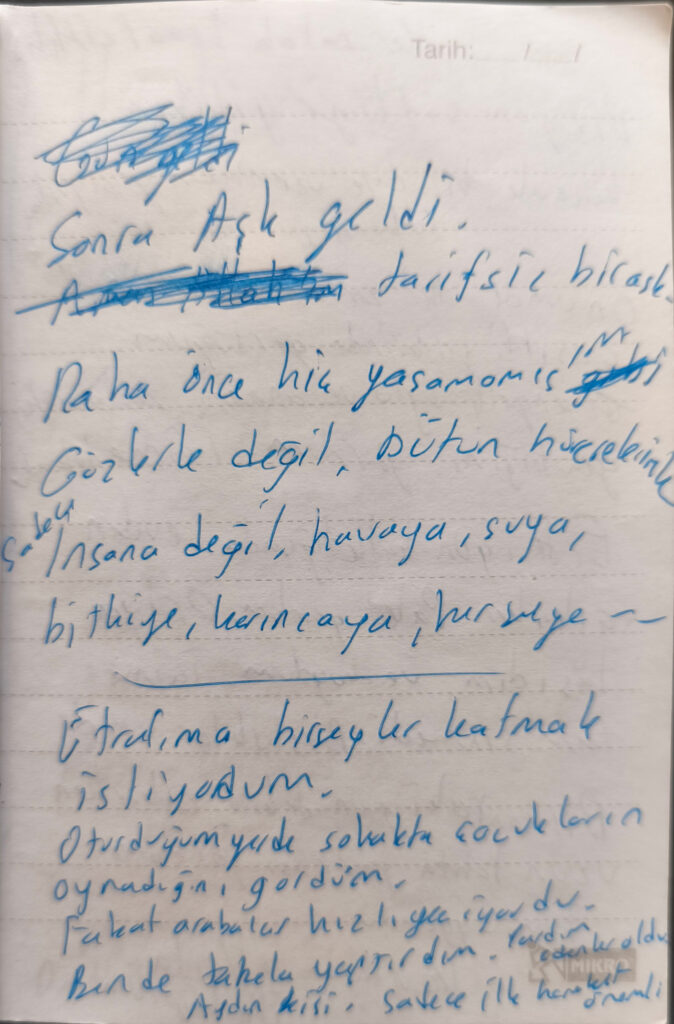 Tarih: / /
Sonra Aşk geldi.
Aman Allah'ım tarifsiz bir aşk
Daha önce hiç yaşamamış
Gözlerle değil, Bütün hücrelerimle
Sadece
İnsana değil, havaya, suya,
bitkiye, karıncaya, herşeye --
Etrafıma birşeyler katmak
istiyordum.
Oturduğum yerde sokakta çocukların
oynadığını gördüm.
Fakat arabalar hızlı geçiyordu.
Bende tabela yaptırdım. Yardım
edenler oldu
Aydın kişi. Sadece ilk hareket
önemli
MİKRO